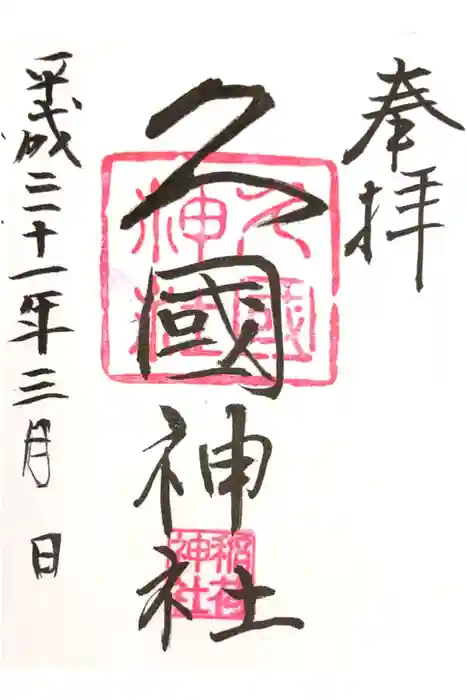 奉拝
久國神社
平成三十一年三月 日
久國神社
稲荷神社